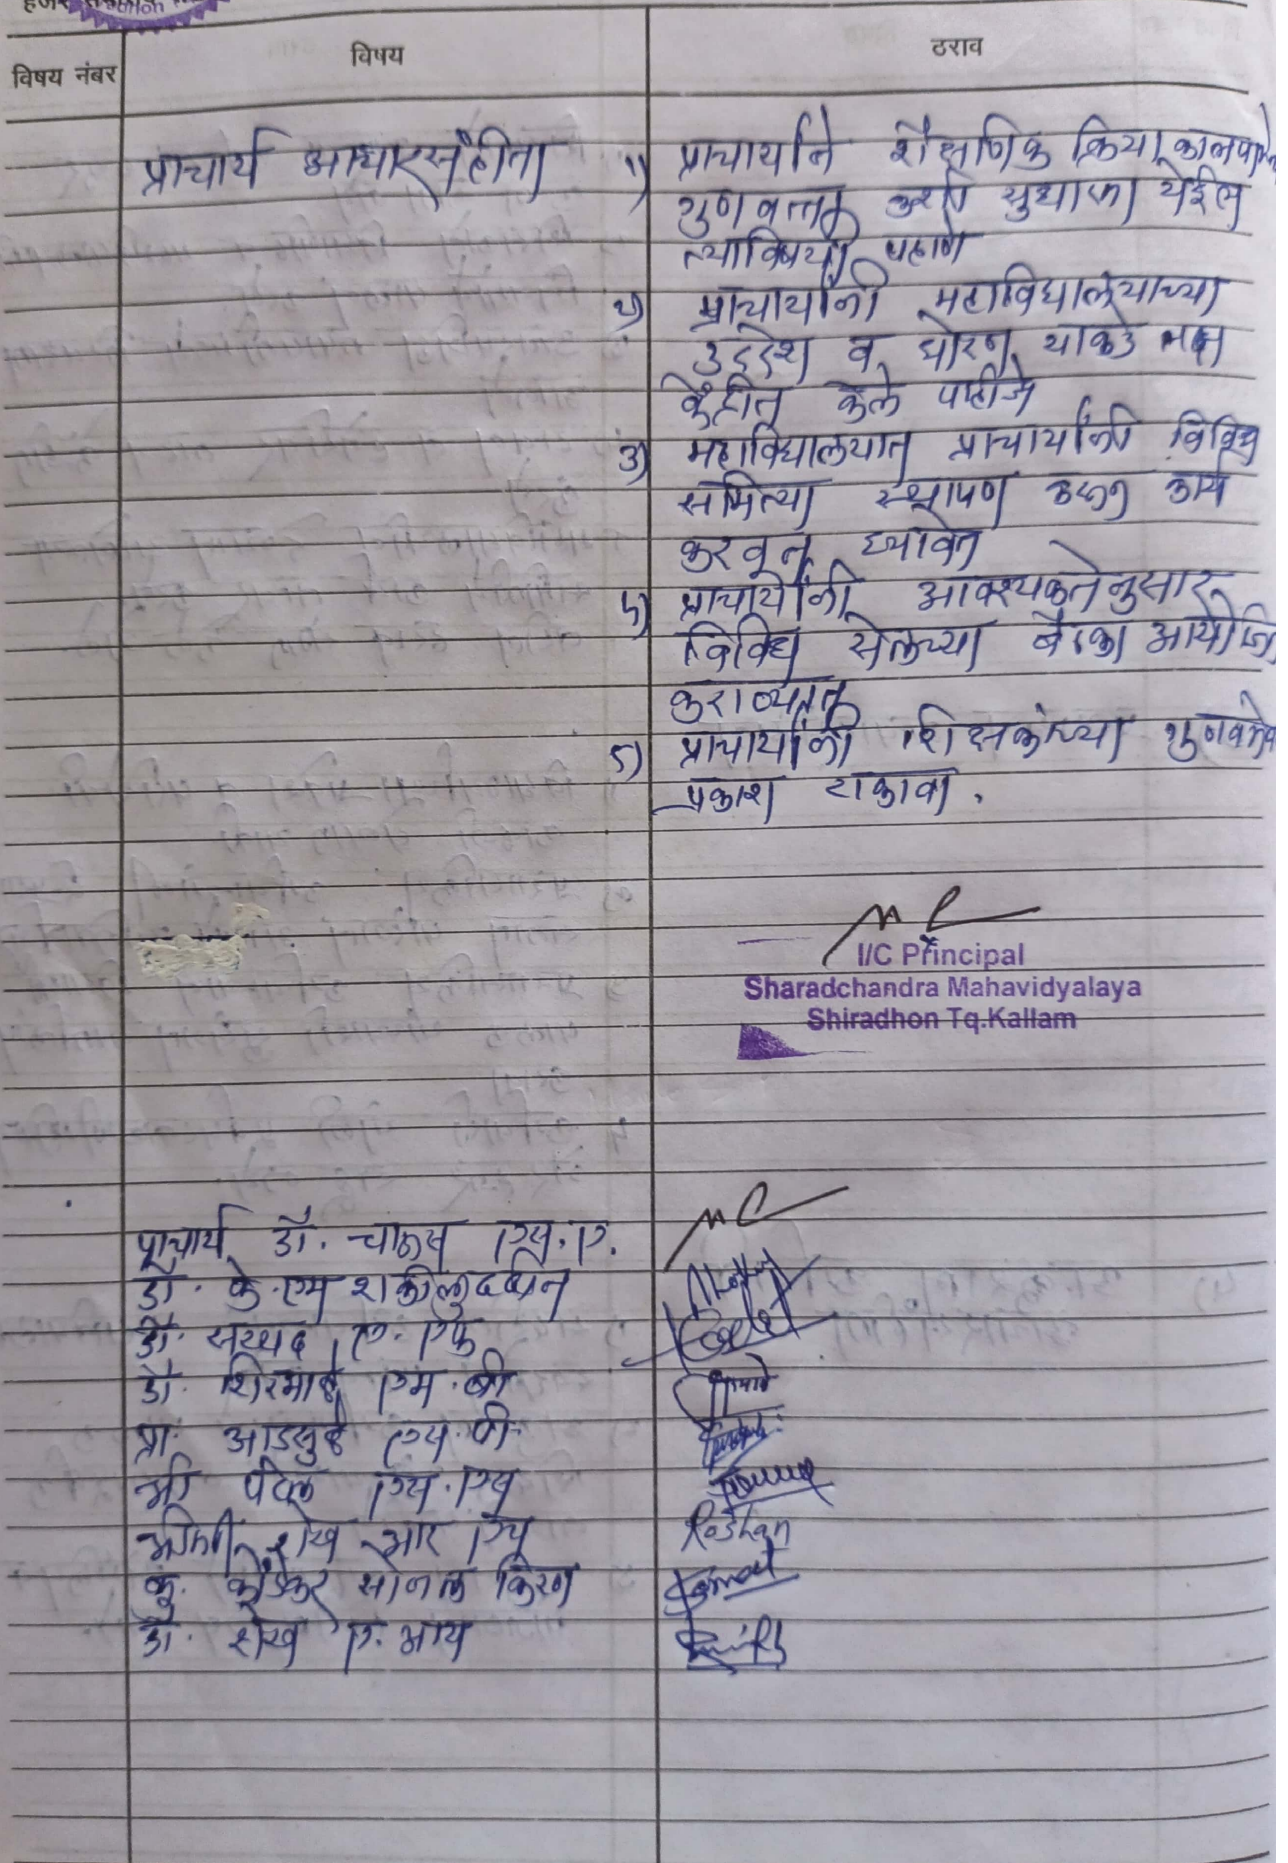 विषय नंबर
विषय
ठराव
प्राचार्य आचारसंहिता
१) प्राचार्याने शैक्षणिक क्रिया
गुणवत्तत कशी सुधारणा येईल
त्याविषयी पहाणे
२) प्राचार्यांनी महाविद्यालयाच्या
उद्देश व धोरण याकडे लक्ष
केंद्रीत केले पाहीजे
३) महाविद्यालयात प्राचार्यांनी विविध
समित्या स्थापण करून कार्य
करवून घ्यावेत
४) प्राचार्यांनी आवश्यकतेनुसार
विविध सेलच्या बैठका आयोजि
कराव्यतत
५) प्राचार्यांनी शिक्षकांच्या
प्रकाश टाकावा.
I/C Principal
Sharadchandra Mahavidyalaya
Shiradhon Tq.Kallam
प्राचार्य डॉ. चाऊस एस. ए.
डॉ. के. एम शकीलुद्दीन
डॉ. सय्यद ए. एफ
डॉ. शिरमाळे एम. बी
प्रा. आडसुळे एस. पी
श्री पटेल एस. एस
श्रीमती शेख आर एस Roshan
कु. सोनल किरण
डॉ. शेख ए. आय